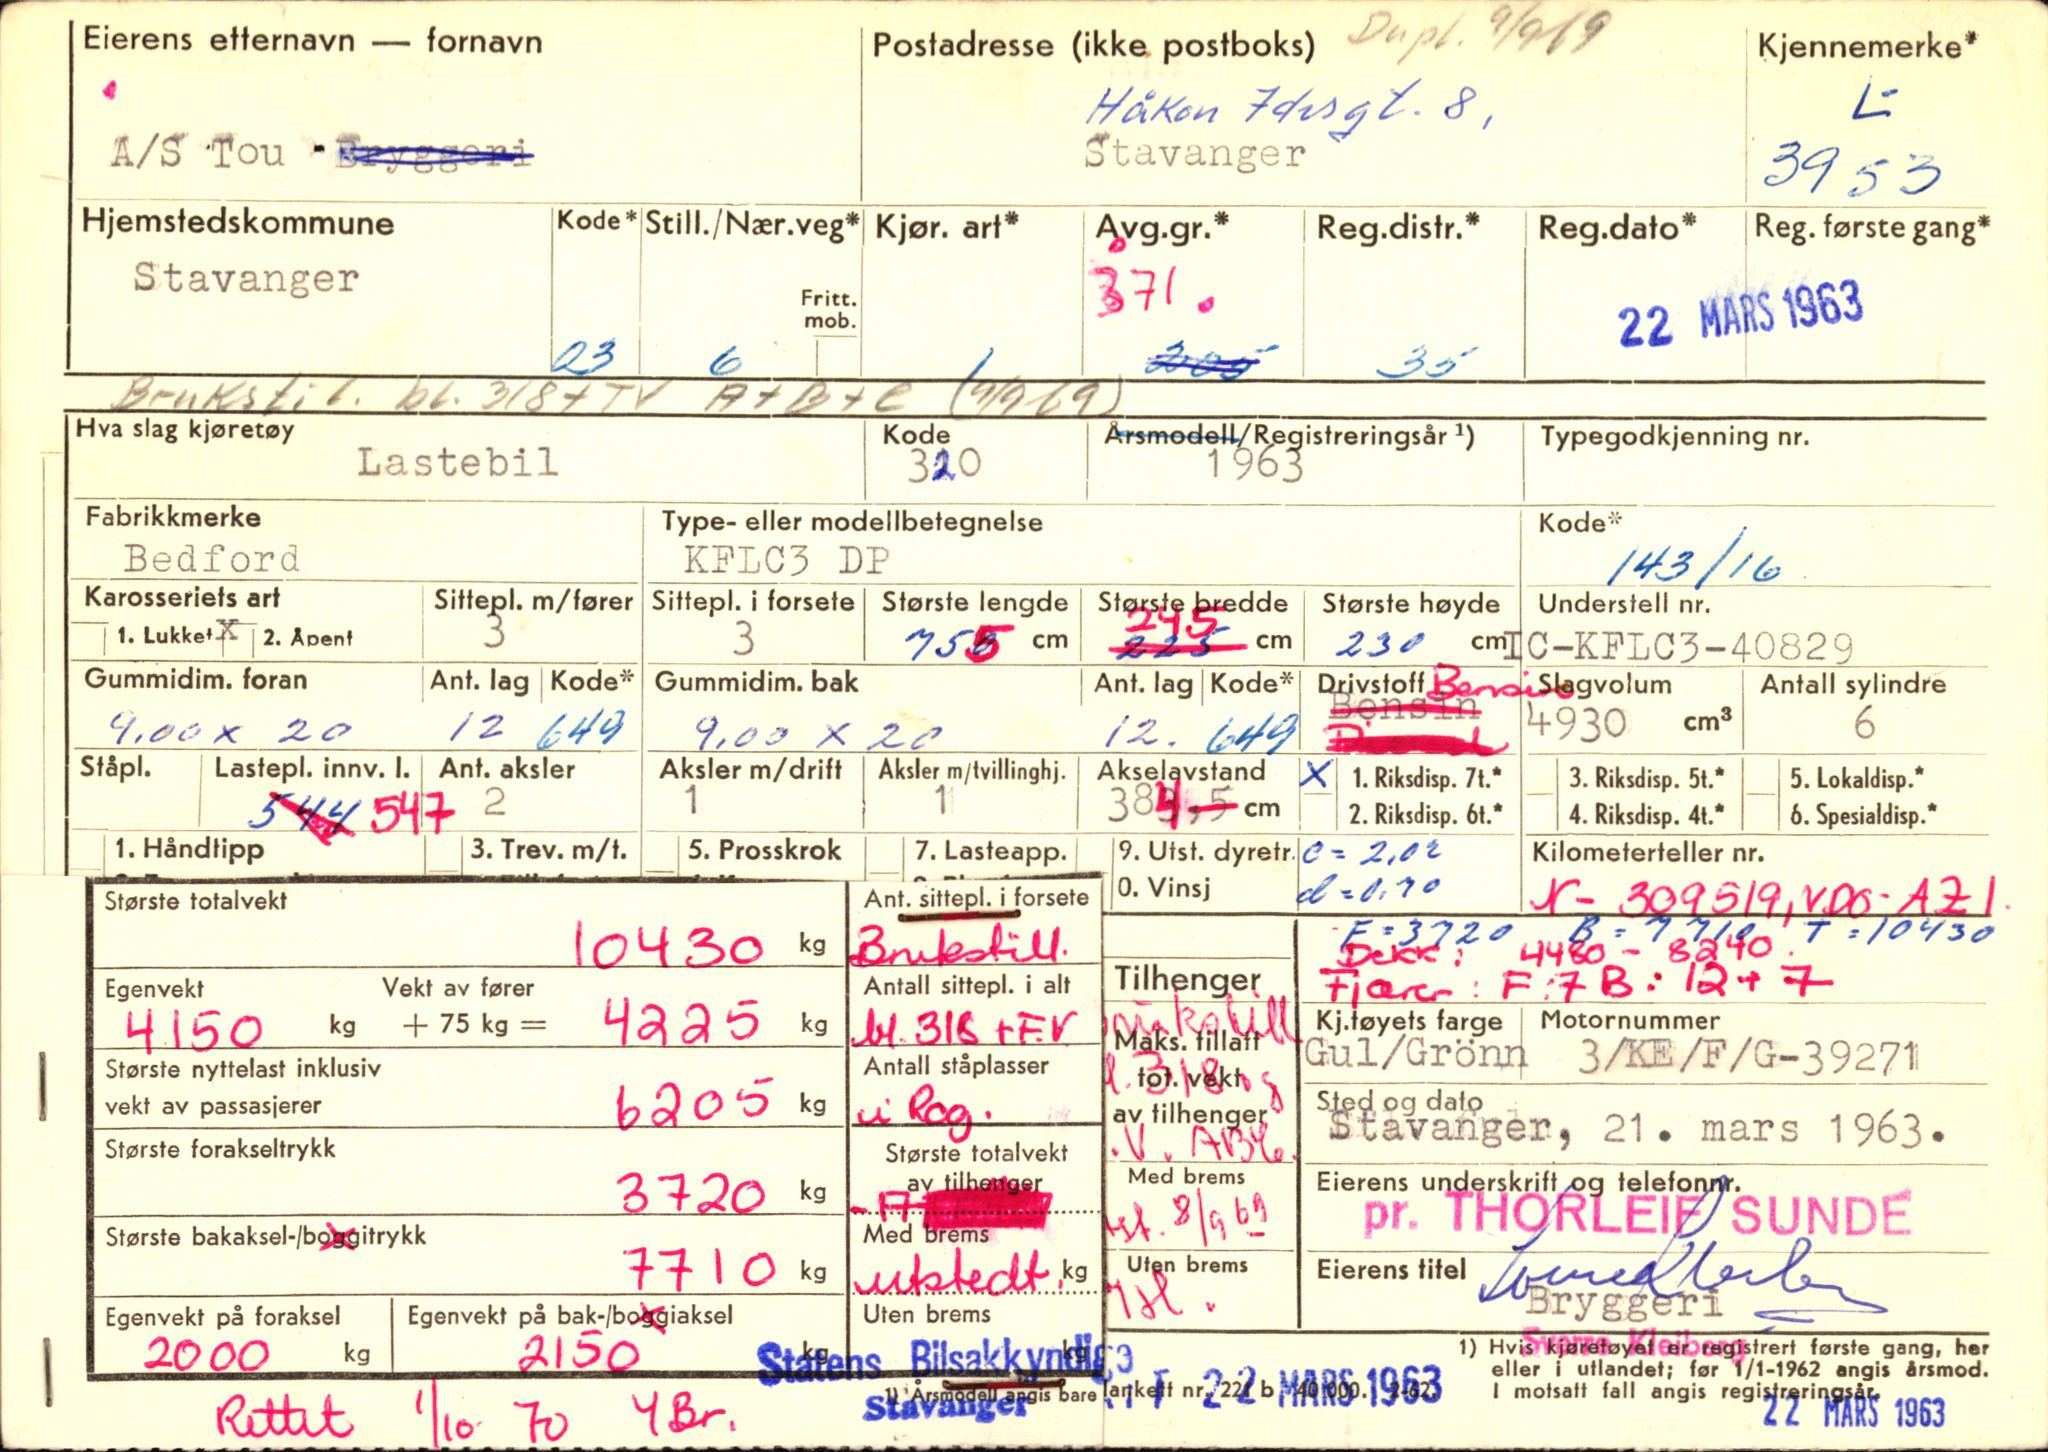 Dupl. 9/9 69
Eierens etternavn — fornavn
Postadresse (ikke postboks)
Kjennemerke*
A/S Tou Bryggeri
Håkon 7desgt. 8,
Stavanger
L-
3953
Hjemstedskommune
Kode*
Still./Nær.veg*
Kjør. art*
Avg.gr.*
Reg.distr.*
Reg.dato*
Reg. første gang*
Stavanger
Fritt.
mob.
371.
22 MARS 1963
03
6
1
205
35
Brukstil. bl. 318 + TV A + B + C (9/9 69)
Hva slag kjøretøy
Kode
Årsmodell/Registreringsår ¹)
Typegodkjenning nr.
Lastebil
320
1963
Fabrikkmerke
Type- eller modellbetegnelse
Kode*
Bedford
KFLC3 DP
143/16
Karosseriets art
Sittepl. m/fører
Sittepl. i forsete
Største lengde
Største bredde
Største høyde
Understell nr.
1. Lukket X 2. Åpent
3
3
755 cm
245
225 cm
230 cm
IC-KFLC3-40829
Gummidim. foran
Ant. lag
Kode*
Gummidim. bak
Ant. lag
Kode*
Drivstoff Bensin
Slagvolum
Antall sylindre
9.00 x 20
12
649
9.00 x 20
12.
649
Bensin
4930 cm³
6
Ståpl.
Lastepl. innv. l.
Ant. aksler
Aksler m/drift
Aksler m/tvillinghj.
Akselavstand
X 1. Riksdisp. 7t.*
3. Riksdisp. 5t.*
5. Lokaldisp.*
544 547
2
1
1
384,5 cm
2. Riksdisp. 6t.*
4. Riksdisp. 4t.*
6. Spesialdisp.*
1. Håndtipp
3. Trev. m/t.
5. Prosskrok
7. Lasteapp.
9. Utst. dyretr.
c = 2,02
Kilometerteller nr.
0. Vinsj
d = 0,70
N- 309519, VDO- AZ1.
F = 3720 B = 7710 T = 10430
Dekk: 4480 - 8240.
Fjærer: F: 7 B: 12 + 7
Største totalvekt
10430 kg
Ant. sittepl. i forsete
Brukstill.
Egenvekt
4150 kg
Vekt av fører
+ 75 kg = 4225 kg
Antall sittepl. i alt
bl. 318 + F.V
Største nyttelast inklusiv
vekt av passasjerer
6205 kg
Antall ståplasser
i Rog.
Største forakseltrykk
3720 kg
Største totalvekt
av tilhenger
Største bakaksel-/boggitrykk
7710 kg
Med brems
utstedt. kg
Egenvekt på foraksel
2000 kg
Egenvekt på bak-/boggiaksel
2150 kg
Uten brems
kg
Tilhenger
Maks. tillatt
tot. vekt
av tilhenger
Med brems
8/9 69
Uten brems
Kj.tøyets farge
Motornummer
Gul/Grönn
3/KE/F/G-39271
Sted og dato
Stavanger, 21. mars 1963.
Eierens underskrift og telefonnr.
pr. THORLEIF SUNDE
Eierens titel
Bryggeri
Sverre Kleiberg
Statens Bilsakkyndige
Stavanger
22 MARS 1963
1) Årsmodell angis bare
lankett nr. 221 b 40.000. 2-62.
1) Hvis kjøretøyet er registrert første gang, her
eller i utlandet; før 1/1-1962 angis årsmod.
I motsatt fall angis registreringsår.
22 MARS 1963
Rettet 1/10 70 YBr.